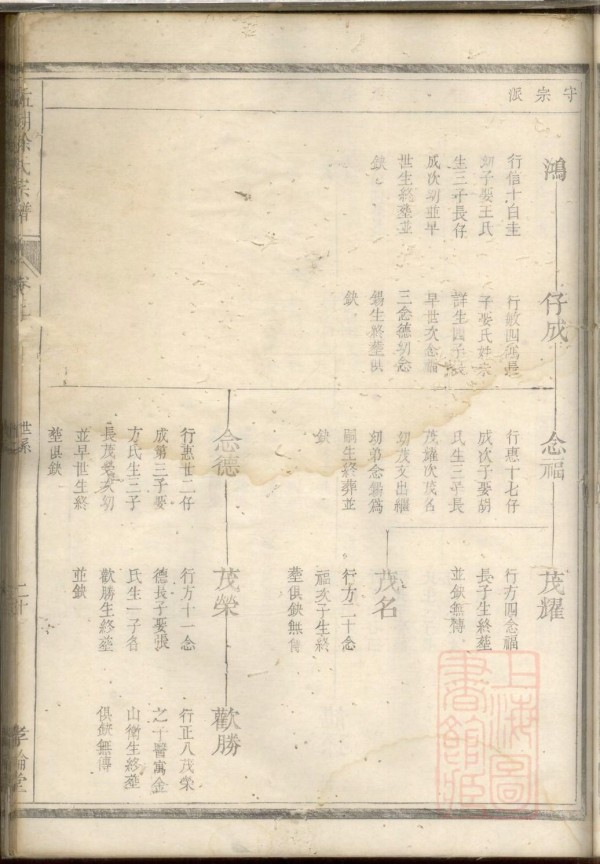 守宗派
鴻
行伯十白圭
幼子娶王氏
生三子長仔
成次幼並早
世生終塟並
缺
仔成
行敏四鴻長
子娶氏姓宗
詳生四子長
早世次念福
三念德幼念
錫生終塟俱
缺
念福
行惠十七仔
成次子娶胡
氏生三子長
茂耀次茂名
幼茂文出繼
幼弟念錫為
嗣生終葬並
缺
茂耀
行方四念福
長子生終塟
並缺無傳
茂名
行方二十念
福次子生終
塟俱缺無傳
念德
行惠廿二仔
成第三子娶
方氏生三子
長茂榮次幼
並早世生終
塟俱缺
茂榮
行方十一念
德長子娶張
氏生一子名
歡勝生終塟
並缺
歡勝
行正八茂榮
之子醫寓金
山衛生終塟
俱缺無傳
徐氏宗譜
世系
上海圖書館